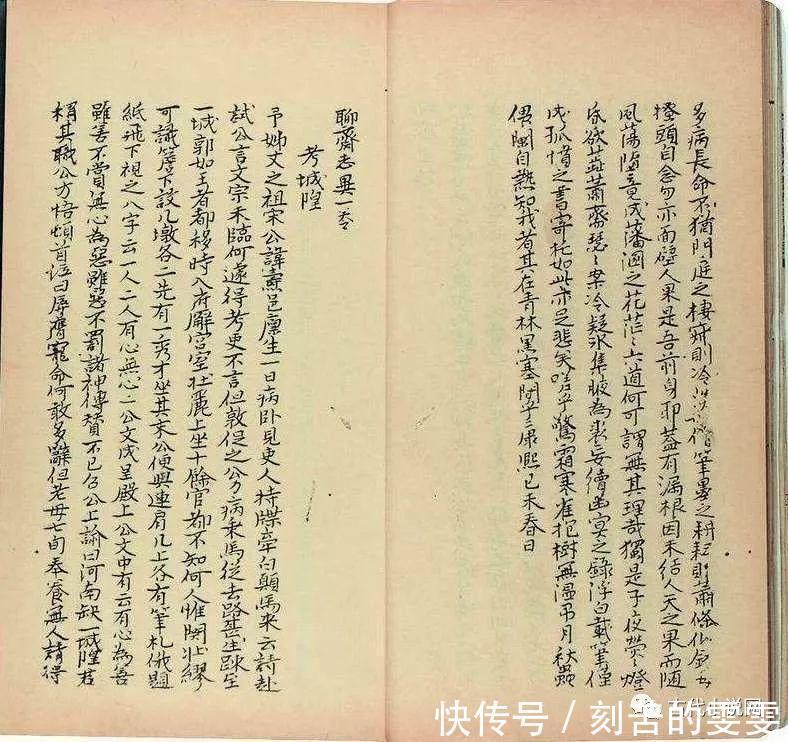 多病長命不猶門庭之棲寂則冷淡如僧筆墨之耕耘則蕭條似
搔頭自念勿亦面壁人果是吾前身耶蓋有漏根因未結人天之果而随
風蕩墮竟成藩溷之花茫〻六道何可謂無其理哉獨是子夜熒〻燈
昏欲蕊蕭齋瑟〻案冷疑冰集腋為裘妄續幽冥之錄浮白載筆僅
成孤憤之書寄托如此亦足悲矣嗟乎驚霜寒雀抱樹無温弔月秋蟲
偎闌自熱知我者其在青林黑塞間乎康熙己未春日
聊齋志異一卷
考城隍
予姊丈之祖宋公諱燾邑廩生一日病卧見吏人持牒牽白顛馬來云請赴
試公言文宗未臨何遽得考吏不言但敦促之公力病乘馬從去路甚生踈至
一城郭如王者都移時入府廨宮室壮麗上坐十餘官都不知何人惟関壮繆
可識簷下設几墩各二先有一秀才坐其末公便與連肩几上各有筆札俄題
紙飛下視之八字云一人二人有心無心二公文成呈殿上公文中有云有心為善
雖善不賞無心為惡雖惡不罰諸神傳賛不已召公上諭曰河南缺一城隍君
稱其職公方悟頓首泣曰辱膺寵命何敢多辭但老母七旬奉養無人請得
古代小说网
快传号 / 刻苦的雯雯